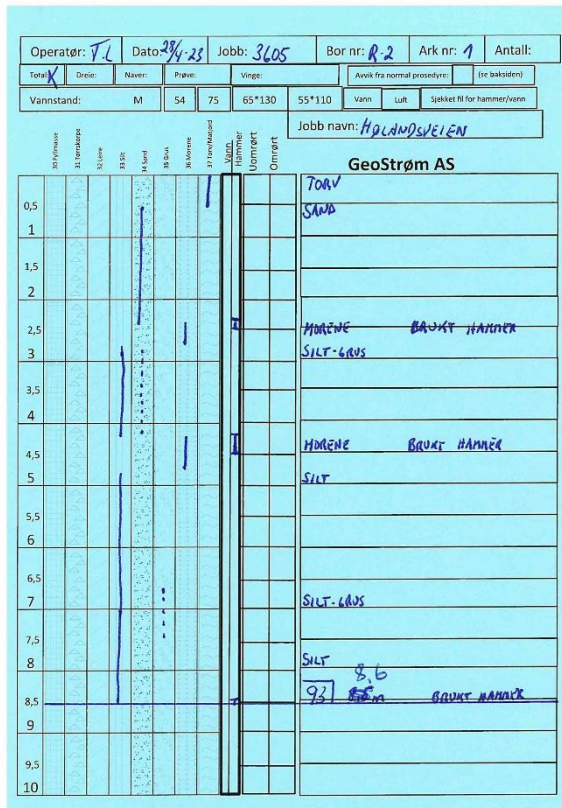 Operatør: T.L Dato: 28/4-23 Jobb: 3605 Bor nr: R-2 Ark nr: 1 Antall:
Total: X Dreie: Naver: Prøve: Vinge: Avvik fra normal prosedyre: (se baksiden)
Vannstand: M 54 75 65*130 55*110 Vann Luft Sjekket fil for hammer/vann
Jobb navn: HØLANDSVEIEN
30 Fyllmasse 31 Tørrskorpe 32 Leire 33 Silt 34 Sand 35 Grus 36 Morene 37 Torv/Matjord Vann Hammer Uomrørt Omrørt
GeoStrøm AS
TORV
0,5 SAND
1
1,5
2
2,5 MORENE BRUKT HAMMER
3 SILT-GRUS
3,5
4
4,5 MORENE BRUKT HAMMER
5 SILT
5,5
6
6,5
7 SILT-GRUS
7,5
8 SILT
8,6
8,5 93 m BRUKT HAMMER
9
9,5
10